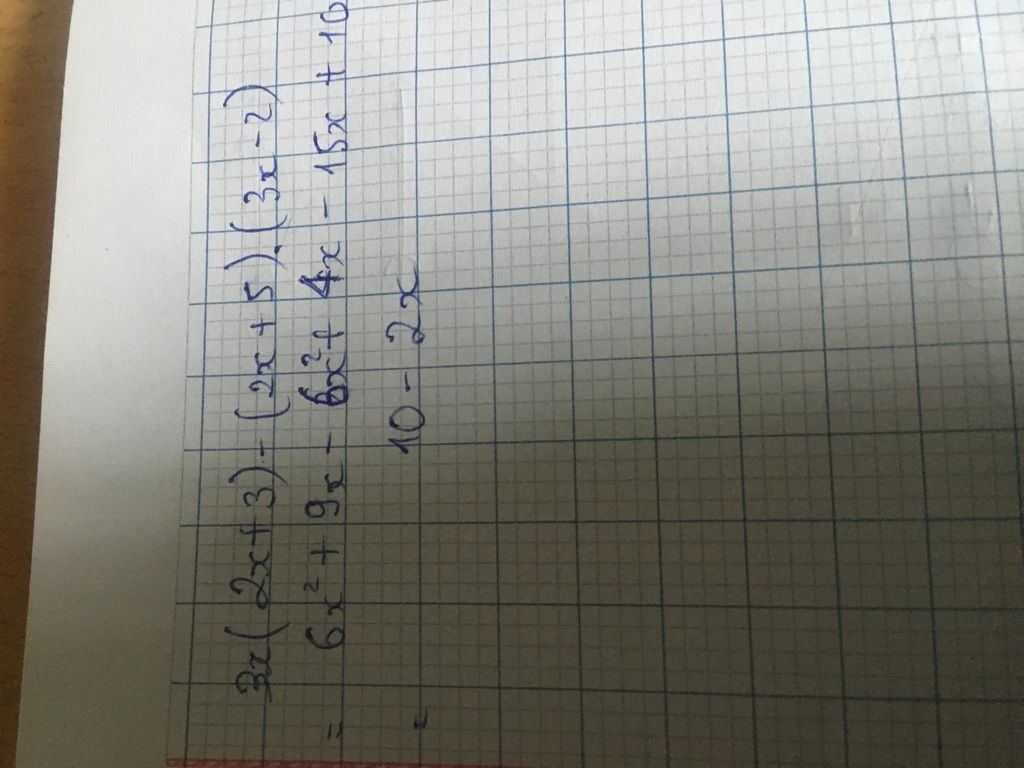 3x(2x+3)-(2x+5).(3x-2)
= 6x²+9x-6x²+4x-15x+10
= 10-2x